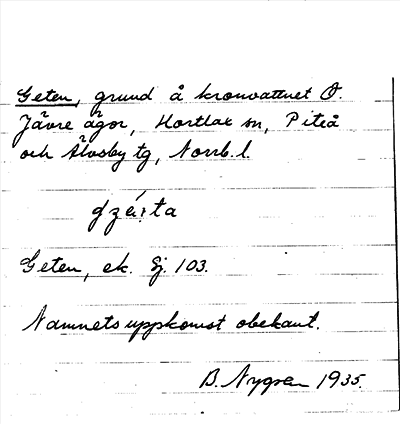 Geten, grund å kronvattnet Ö.
Jävre ägor, Hortlax sn, Piteå
och Älvsby tg, Norrb. l.
Geten, ek. Sj. 103.
Namnets uppkomst obekant.
B. Nygren 1935.